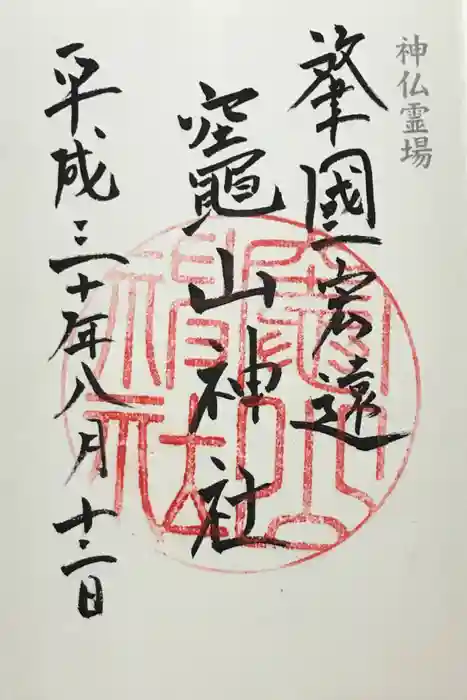 神仏霊場
肇國宏遠
竈山神社
平成三十年八月十二日